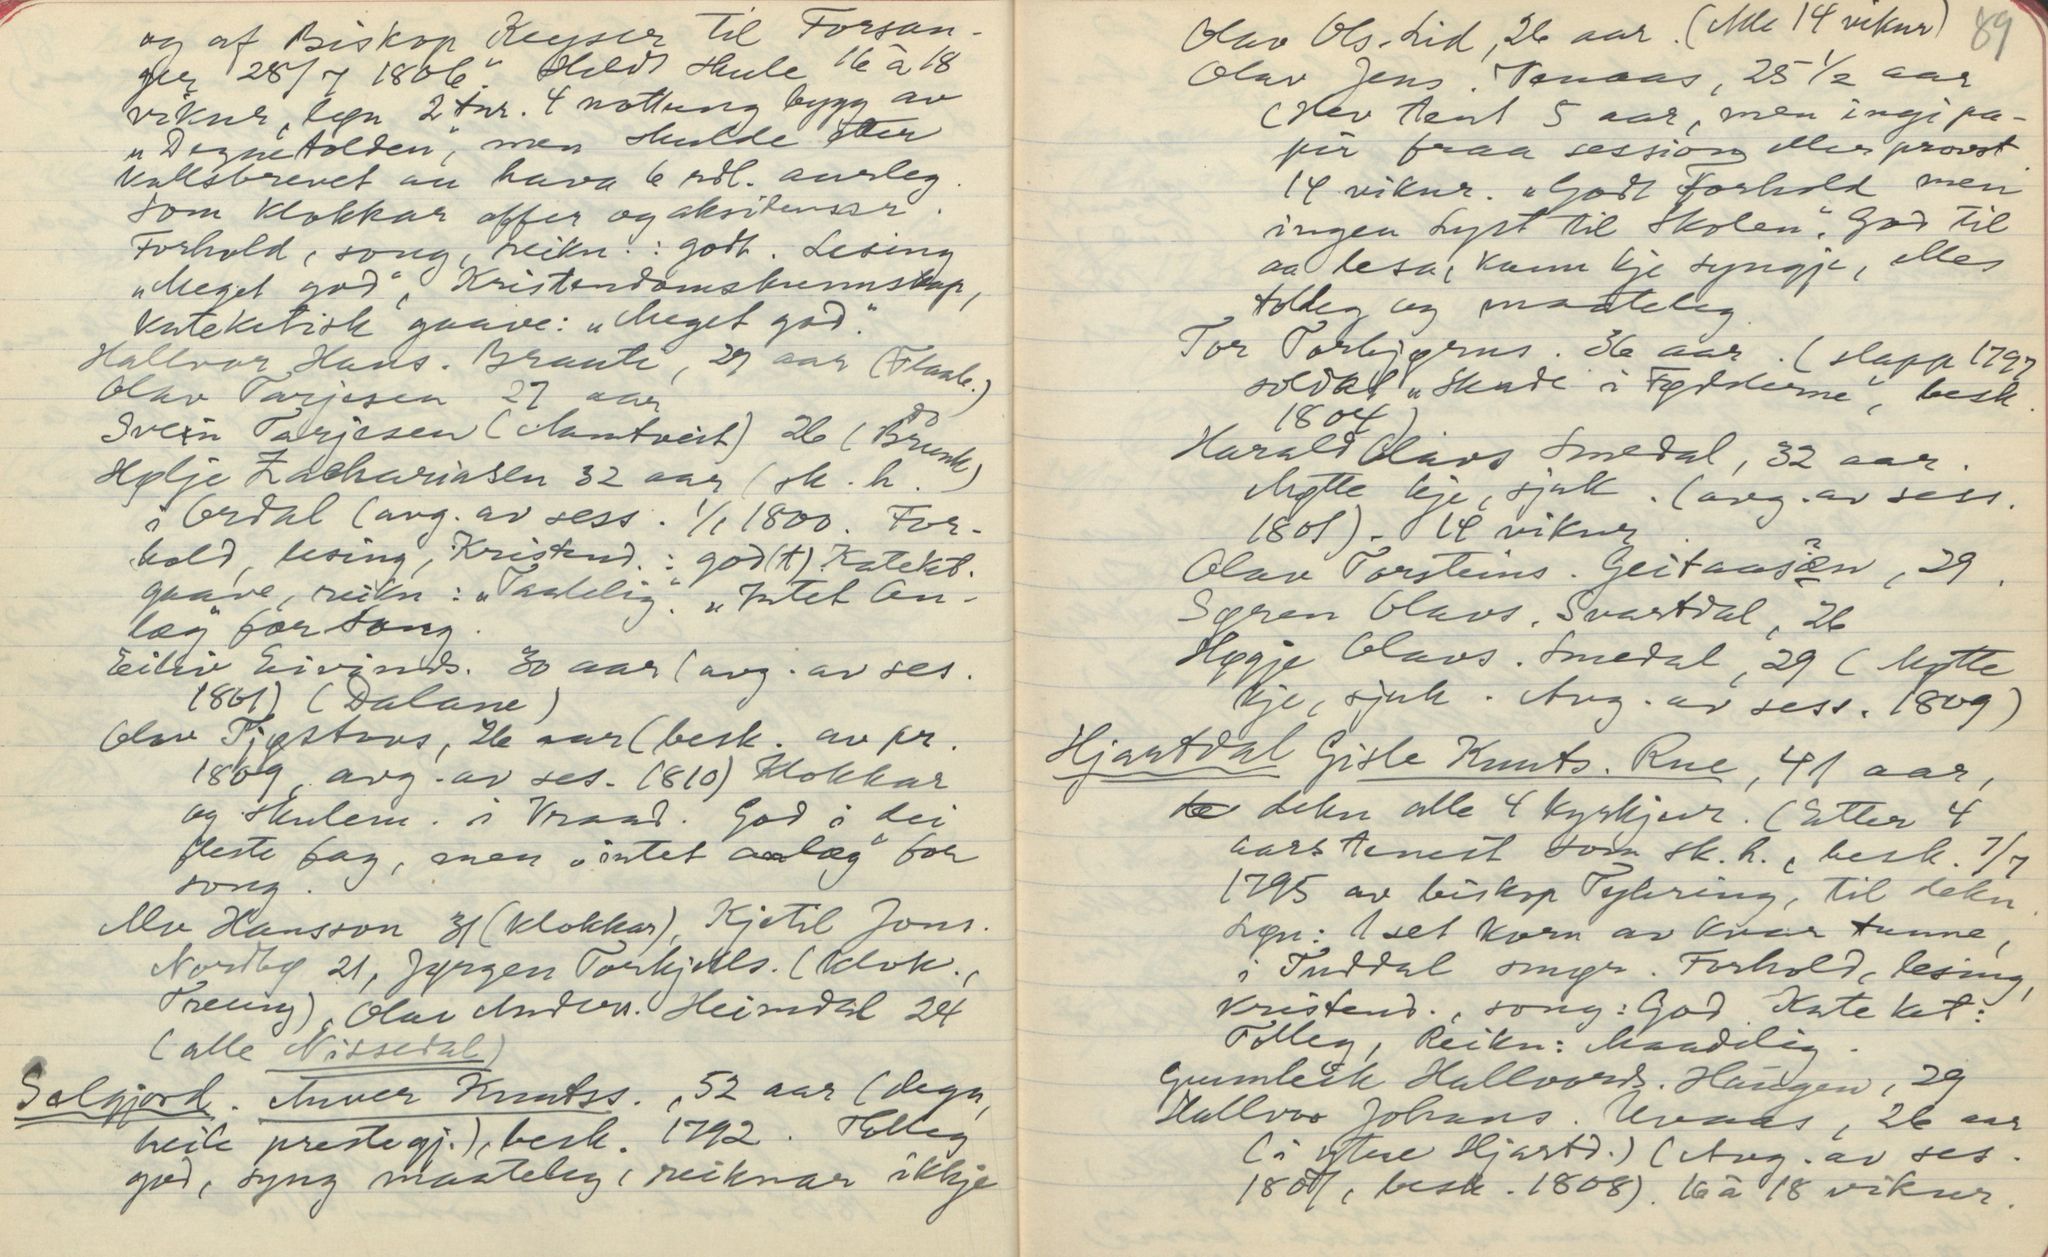 og af Biskop Keyser til Forsan-
ger 28/7 1806." Heldt skule 16 à 18
vikur, løn 2 tnr. 4 nottung bygg av
"Degnetolden", men skulde etter
kallsbrevet au hava 6 rdl. aarleg.
Som klokkar offer og aksidenser.
Forhold, song, reikn.: godt. Lesing
"Meget god", Kristendomskunnskap,
Katekitisk gaave: "Meget god."
Hallvor Hans. Brauti, 29 aar (Flaab.)
Olav Tarjesen 27 aar do
Svein Tarjesen (Mamtveit) 26 (Brunk)
Hølje Zachariasen 32 aar (sk. h.
i Ordal (avg. av sess. 1/1 1800. For-
hold, lesing, Kristend.: god(t) Kateket.
gaave, reikn: "Taalelig". "Intet An-
læg" for song.
Eiliv Eivinds. 30 aar (avg. av ses.
1801) (Dalane)
Olav Tjøstovs, 26 aar (besk. av pr.
1809, avg. av ses. 1810) Klokkar
og skulem. i Vraad. God i dei
fleste fag, men "intet anlæg" for
song.
Alv Hansson 31 (klokkar), Kjetil Jons.
Nordbø 21, Jørgen Torkjells. (klok.,
Treung), Olav Anders. Heimdal 24
(alle Nissedal)
Selgjord. Anver Knutss., 52 aar (degn,
heile prestegj.), besk. 1792. Tolleg
god, syng maateleg, reiknar ikkje
89
Olav Ols. Lid, 26 aar. (Alle 14 vikur)
Olav Jens. Nenaas, 25 1/2 aar
(Hev tent 5 aar, men ingi pa-
pir fraa session eller provst
14 vikur. "Godt Forhold men
ingen Lyst til Skolen". God til
aa lesa, kann kje syngje, elles
tolleg og maateleg
Tor Torbjørns. 36 aar. (slapp 1797
soldat "Skade i Fødderne", besk.
1804)
Harald Olavs Smedal, 32 aar.
Møtte kje, sjuk. (avg. av sess.
1801). 14 vikur
Olav Torsteins. Geitaasæn?, 29.
Søren Olavs. Svartdal, 26
Høgje Olavs. Smedal, 29 (Møtte
kje, sjuk. Avg. av sess. 1809)
Hjartdal Gisle Knuts. Rue, 41 aar,
dekn alle 4 kyrkjur. (Etter 4
aars tenest som sk. h., besk. 7/7
1795 av biskop Tybring, til dekn.
Løn: 1 set korn av kvar tunne,
i Tuddal smør. Forhold, lesing,
kristend., song: God Kateket:
Tolleg, Reikn: Maadelig.
Gunleik Hallvords. Haugen, 29
Hallvor Johans. Uvaas, 26 aar
(i ytre Hjartd.) (Avg. av ses.
1807, besk. 1808). 16 à 18 vikur.